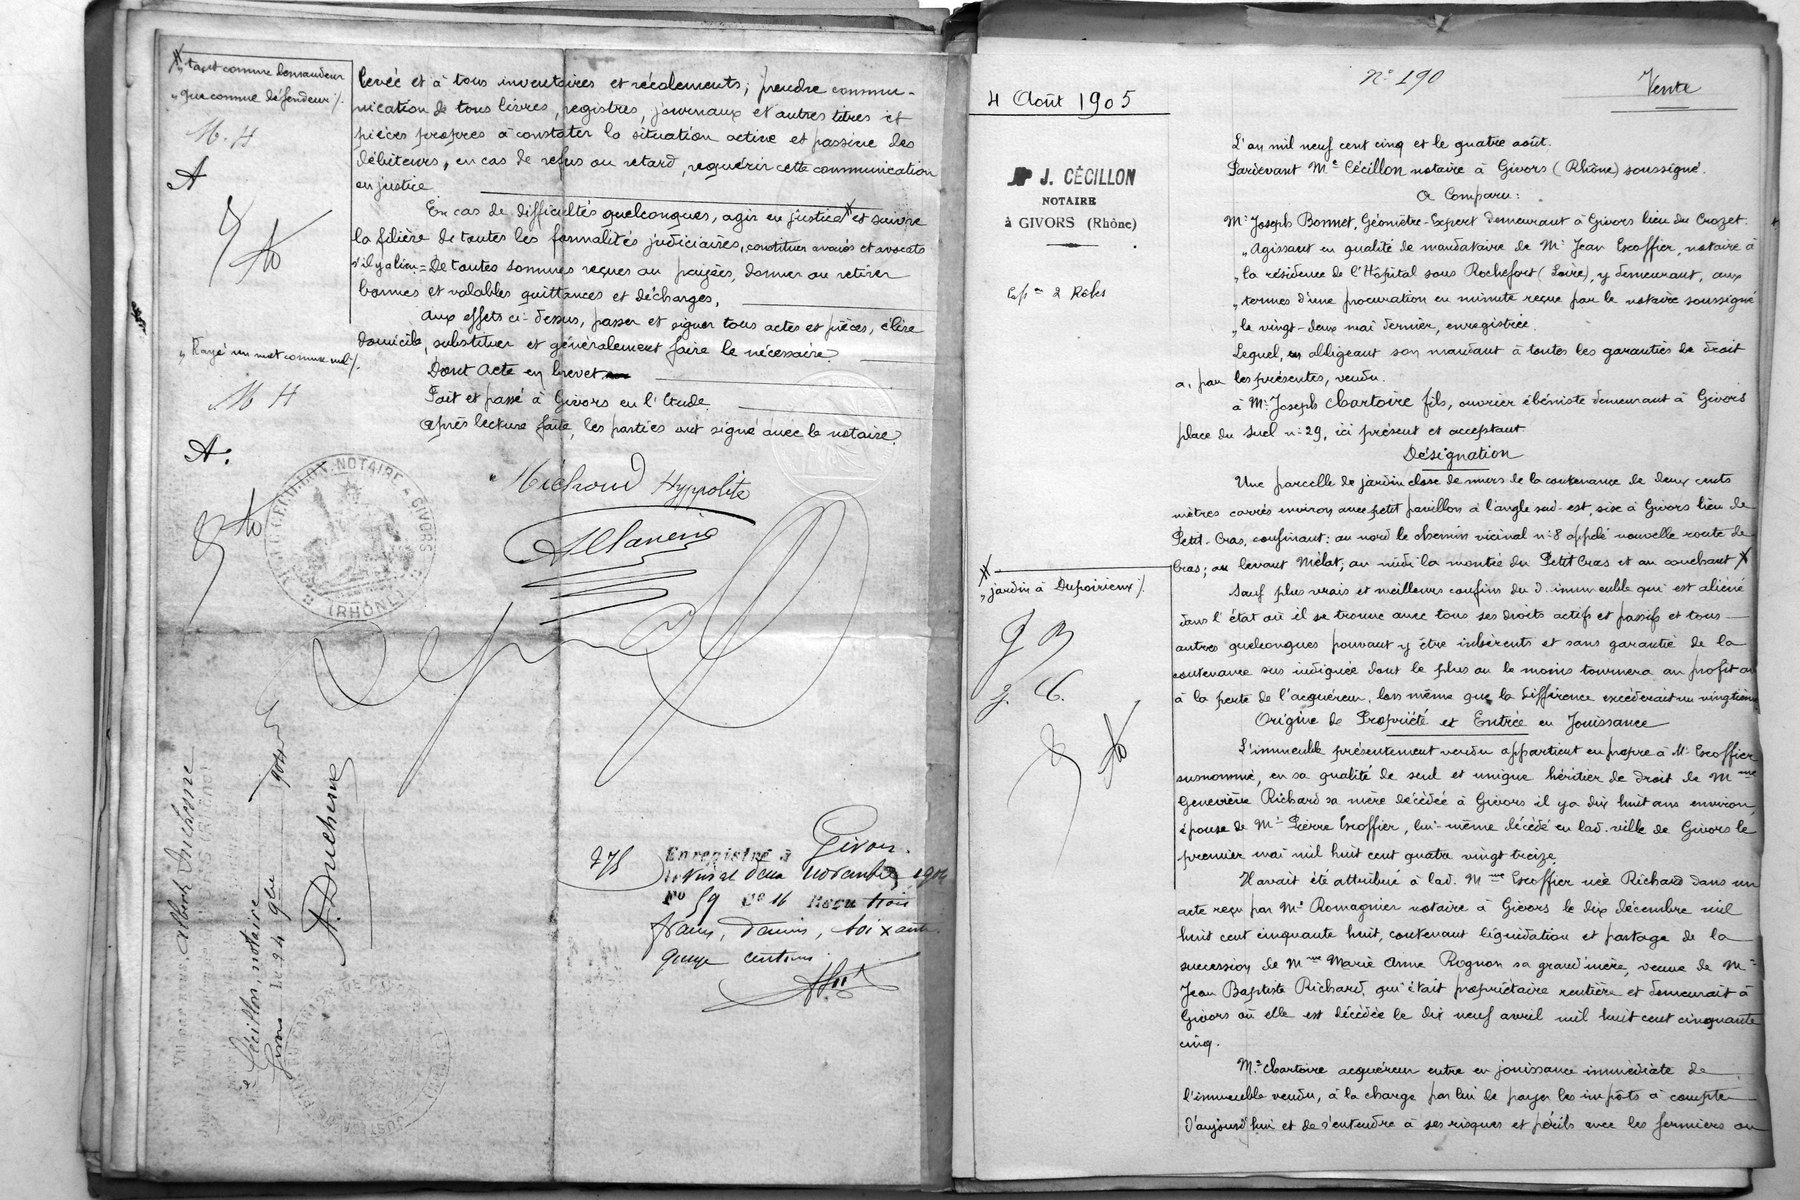 tant comme demandeur
que comme défendeur ./.
M. H
A
levée et à tous inventaires et récolements; prendre commu-
nication de tous livres, registres, journaux et autres titres et
pièces propres à constater la situation active et passive des
débiteurs, en cas de refus ou retard, requérir cette communication
en justice.
En cas de difficultés quelconques, agir en justice et suivre
la filière de toutes les formalités judiciaires, constituer avoués et avocats
s'il y a lieu = De toutes sommes reçues ou payées, donner ou retirer
bonnes et valables quittances et décharges,
Aux effets ci-dessus, passer et signer tous actes et pièces, élire
domicile, substituer et généralement faire le nécessaire.
Dont acte en brevet
Fait et passé à Givors en l'Etude.
Après lecture faite, les parties ont signé avec le notaire.
Rayé un mot comme nul ./.
M H
A.
NOTAIRE A GIVORS
(RHÔNE)
Michoud Hyppolite
Enregistré à Givors
le vingt deux novembre
Fo 59 Ce 16 Reçu trois
francs, décimes, soixante
quinze centimes
Albert Duchesne
Cécillon, notaire
Givors le 24 9bre 1904
A. Duchesne
4 Août 1905
N° 190
Vente
J. CÉCILLON
NOTAIRE
à GIVORS (Rhône)
2 Rôles
L'an mil neuf cent cinq et le quatre août.
Pardevant Me Cécillon notaire à Givors (Rhône) soussigné.
A Comparu:
Mr Joseph Bonnet, Géomètre-Expert demeurant à Givors lieu du Crozet.
„ Agissant en qualité de mandataire de Mr Jean Escoffier, notaire à
„ la résidence de l'Hôpital sous Rochefort (Loire), y demeurant, aux
„ termes d'une procuration en minute reçue par le notaire soussigné
„ le vingt-deux mai dernier, enregistrée.
Lequel, en obligeant son mandant à toutes les garanties de droit
a, par les présentes, vendu.
à Mr Joseph Chartoire fils, ouvrier ébéniste demeurant à Givors
place du Suel n° 29, ici présent et acceptant
Désignation
Une parcelle de jardin close de murs de la contenance de deux cents
mètres carrés environ avec petit pavillon à l'angle sud-est, sise à Givors lieu de
Petit-Cras, confinant: au nord le chemin vicinal n° 8 appelé nouvelle route de
Cras; au levant Mélat, au midi la montée du Petit Cras et au couchant
jardin à Dupoirieux ./.
Sauf plus vrais et meilleurs confins du d. immeuble qui est aliéné
dans l'état où il se trouve avec tous ses droits actifs et passifs et tous
autres quelconques pouvant y être inhérents et sans garantie de la
contenance sus indiquée dont le plus ou le moins tournera au profit ou
à la perte de l'acquéreur, lors même que la différence excéderait un vingtième
J B
J. C.
Origine de Propriété et Entrée en Jouissance
L'immeuble présentement vendu appartient en propre à Mr Escoffier
susnommé, en sa qualité de seul et unique héritier de droit de Mme
Geneviève Richard sa mère décédée à Givors il y a dix huit ans environ,
épouse de Mr Pierre Escoffier, lui-même décédé en lad. ville de Givors le
premier mai mil huit cent quatre vingt treize.
Il avait été attribué à lad. Mme Escoffier née Richard dans un
acte reçu par Me Romagnier notaire à Givors le dix décembre mil
huit cent cinquante huit, contenant liquidation et partage de la
succession de Mme Marie Anne Rognon sa grand'mère, veuve de Mr
Jean Baptiste Richard, qui était propriétaire rentière et demeurait à
Givors où elle est décédée le dix neuf avril mil huit cent cinquante
cinq.
Mr Chartoire acquéreur entre en jouissance immédiate de
l'immeuble vendu, à la charge par lui de payer les impôts à compter
d'aujourd'hui et de s'entendre à ses risques et périls avec les fermiers ou